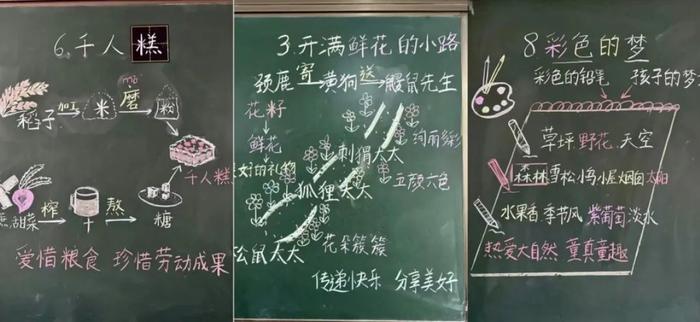 6.千人糕
mò
稻子 加工 米 磨 粉
千人糕
甜菜 榨 熬 糖
爱惜粮食 珍惜劳动成果
3.开满鲜花的小路
颈鹿 寄 黄狗 送 鼹鼠先生
花籽
鲜花
好的礼物
绚丽多彩
刺猬太太
五颜六色
狐狸太太
花朵簇簇
松鼠太太
传递快乐 分享美好
8彩色的梦
彩色的铅笔 孩子的梦
草坪 野花 天空
森林 雪松 小鸟 小屋 烟囱 太阳
水果香 季节风 紫葡萄 淡水
热爱大自然 童真童趣